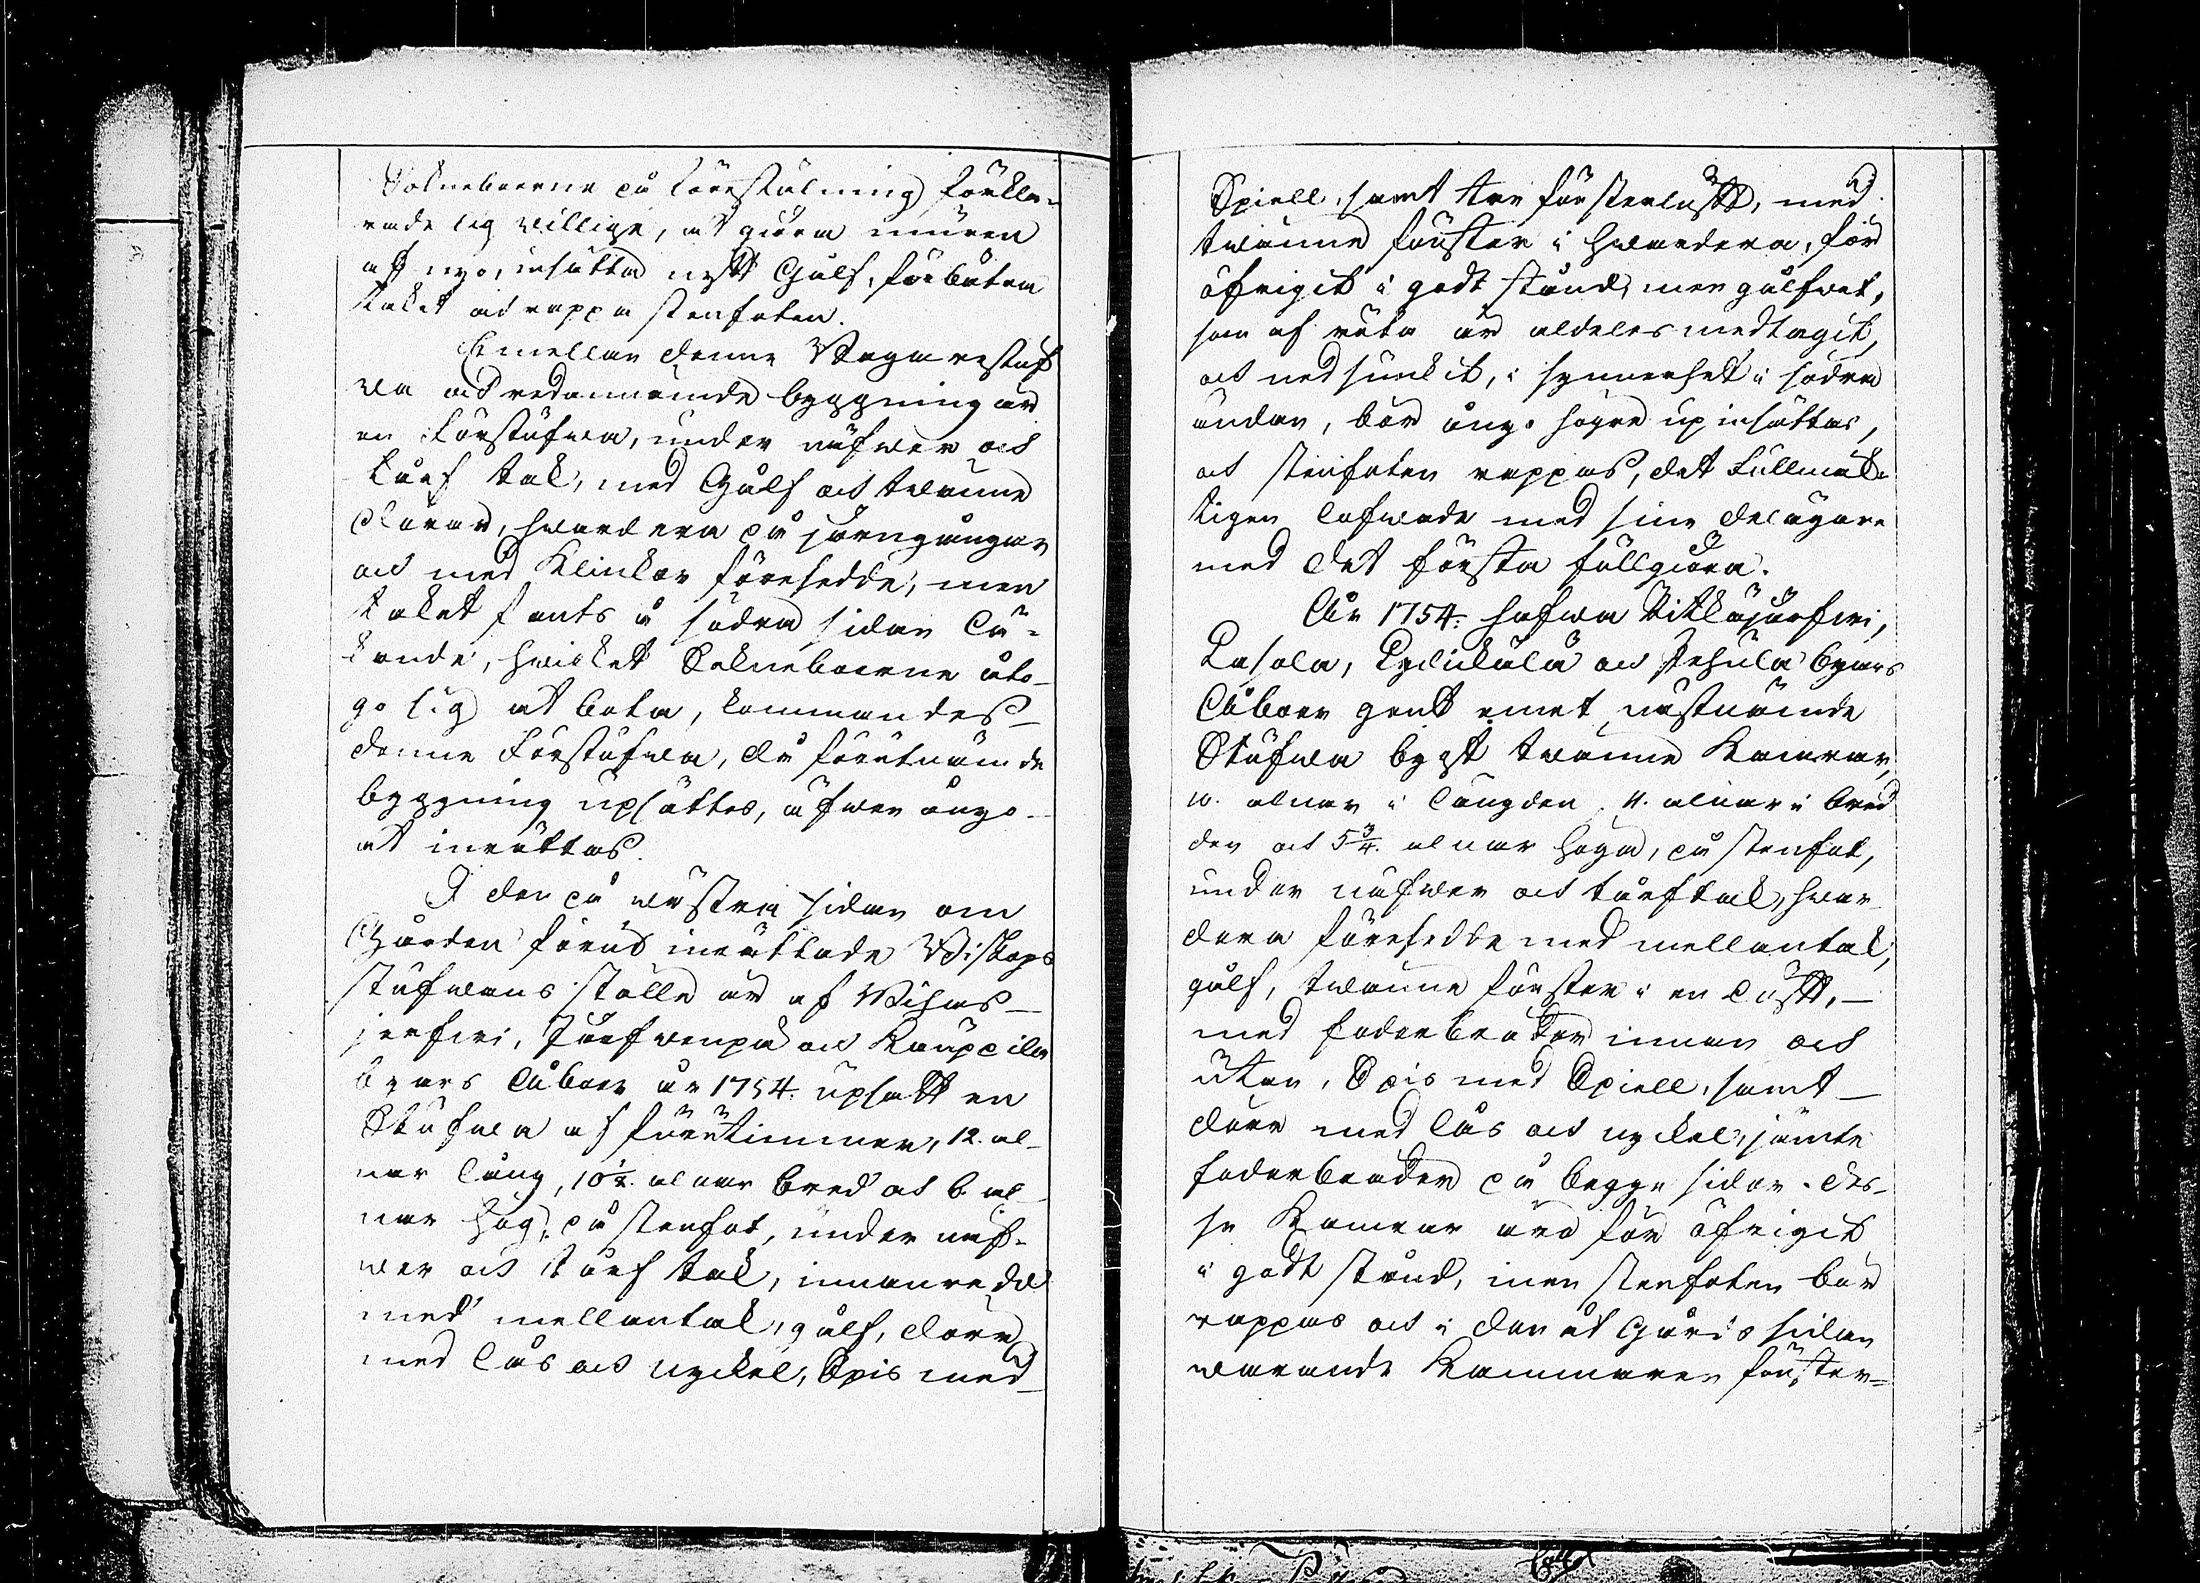 Sokneboerne på förestälning förkla-
rade sig willige, at giöra muren
af nyo, insätta nytt Gålf, förbättra
taket och rappa stenfoten.
Emellan denne Wägarestuf
wa och redannämde byggning är
en Förstufwa, under näfwer och
Torf tak, med Gålf och twänne
Dörar, hwardera på järngångar
och med Klinkor försedde, men
taket fants å södra sidan lä-
kande, hwilket Sokneboerne åto-
go sig at bota, kommandes
denne Förstufwa, då förutnämde
byggning upsättes, äfwen ånyo
at inrättas.
I den på wästra sidan om
Gården förut inrättade Biskops
stufwans ställe är af Wihas-
jerfwi, Turfwenpä och Kauppila
byars Åboer år 1754. upsatt en
Stufwa af furutimmer, 12. al-
nar lång, 10½. alnar bred och 6. al-
nar hög, på stenfot, under näf-
wer och torf tak, innanredd
med mellantak, gålf, dörr
med lås och nyckel, Spis med
Spiell, samt tre fönsterlufft, med
twänne fönster i hwardera, för
öfrigit i godt stånd, men gålfwet,
som af röta är aldeles medtagit,
och nedsunckit, i synnerhet i södra
ändan, bör ånyo högre up insättas,
och stenfoten rappas, det Fullmäk-
tigen lofwade med sine delägare
med det första fullgiöra.
År 1754. hafwa Pitkäjärfwi,
Lasola, och byars
Åboer gent emot nästnämde
Stufwa bygt twänne Kamrar,
10. alnar i längden, 4. alnar i bred
den och 5¾. alnar höga, på stenfot,
under näfwer och torftak, hwar-
dera försedde med mellantak,
gålf, twänne fönster i en lufft,
med foderbräder innan och
utan, Spis med Spiell, samt
dörr med lås och nyckel, jämte
foderbräder på begge sidor. Des-
se Kamrar äro för öfrigit
i godt stånd, men stenfoten bör
rappas och i den åt Gårds sidan
warande Kammaren fönster-